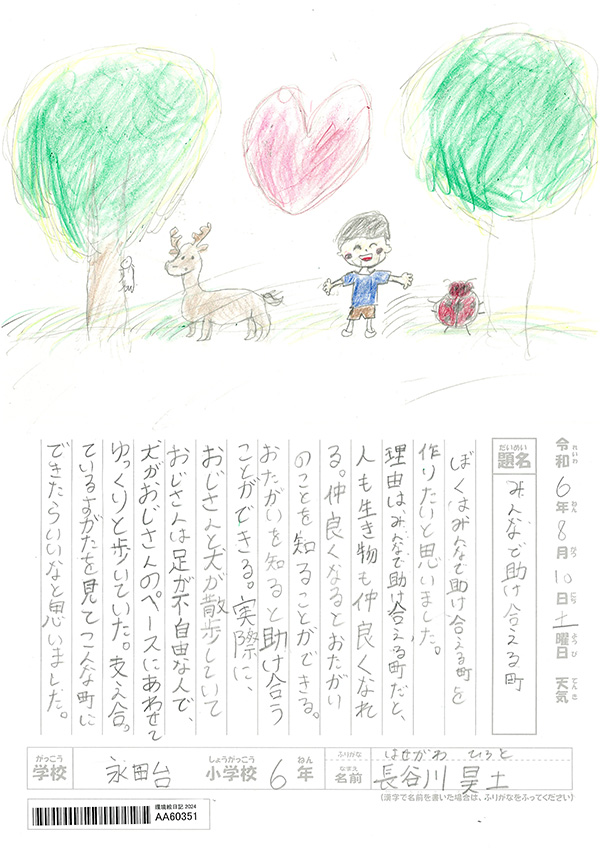 令和6年8月10日土曜日 天気
れいわ ねん がつ にち ようび てんき
だいめい
題名
みんなで助け合える町
ぼくはみんなで助け合える町を
作りたいと思いました。
理由は、みんなで助け合える町だと、
人も生き物も仲良くなれ
る。仲良くなるとおたがい
のことを知ることができる。
おたがいを知ると助け合う
ことができる。実際に、
おじさんと犬が散歩していて
おじさんは足が不自由な人で、
犬がおじさんのペースにあわせて
ゆっくりと歩いていた。支え合っ
ているすがたを見てこんな町に
できたらいいなと思いました。
がっこう しょうがっこう ねん
学校 永田台 小学校 6年
ふりがな はせがわ ひろと
なまえ
名前 長谷川 昊士
(漢字で名前を書いた場合は、ふりがなをふってください)
環境絵日記 2024
AA60351